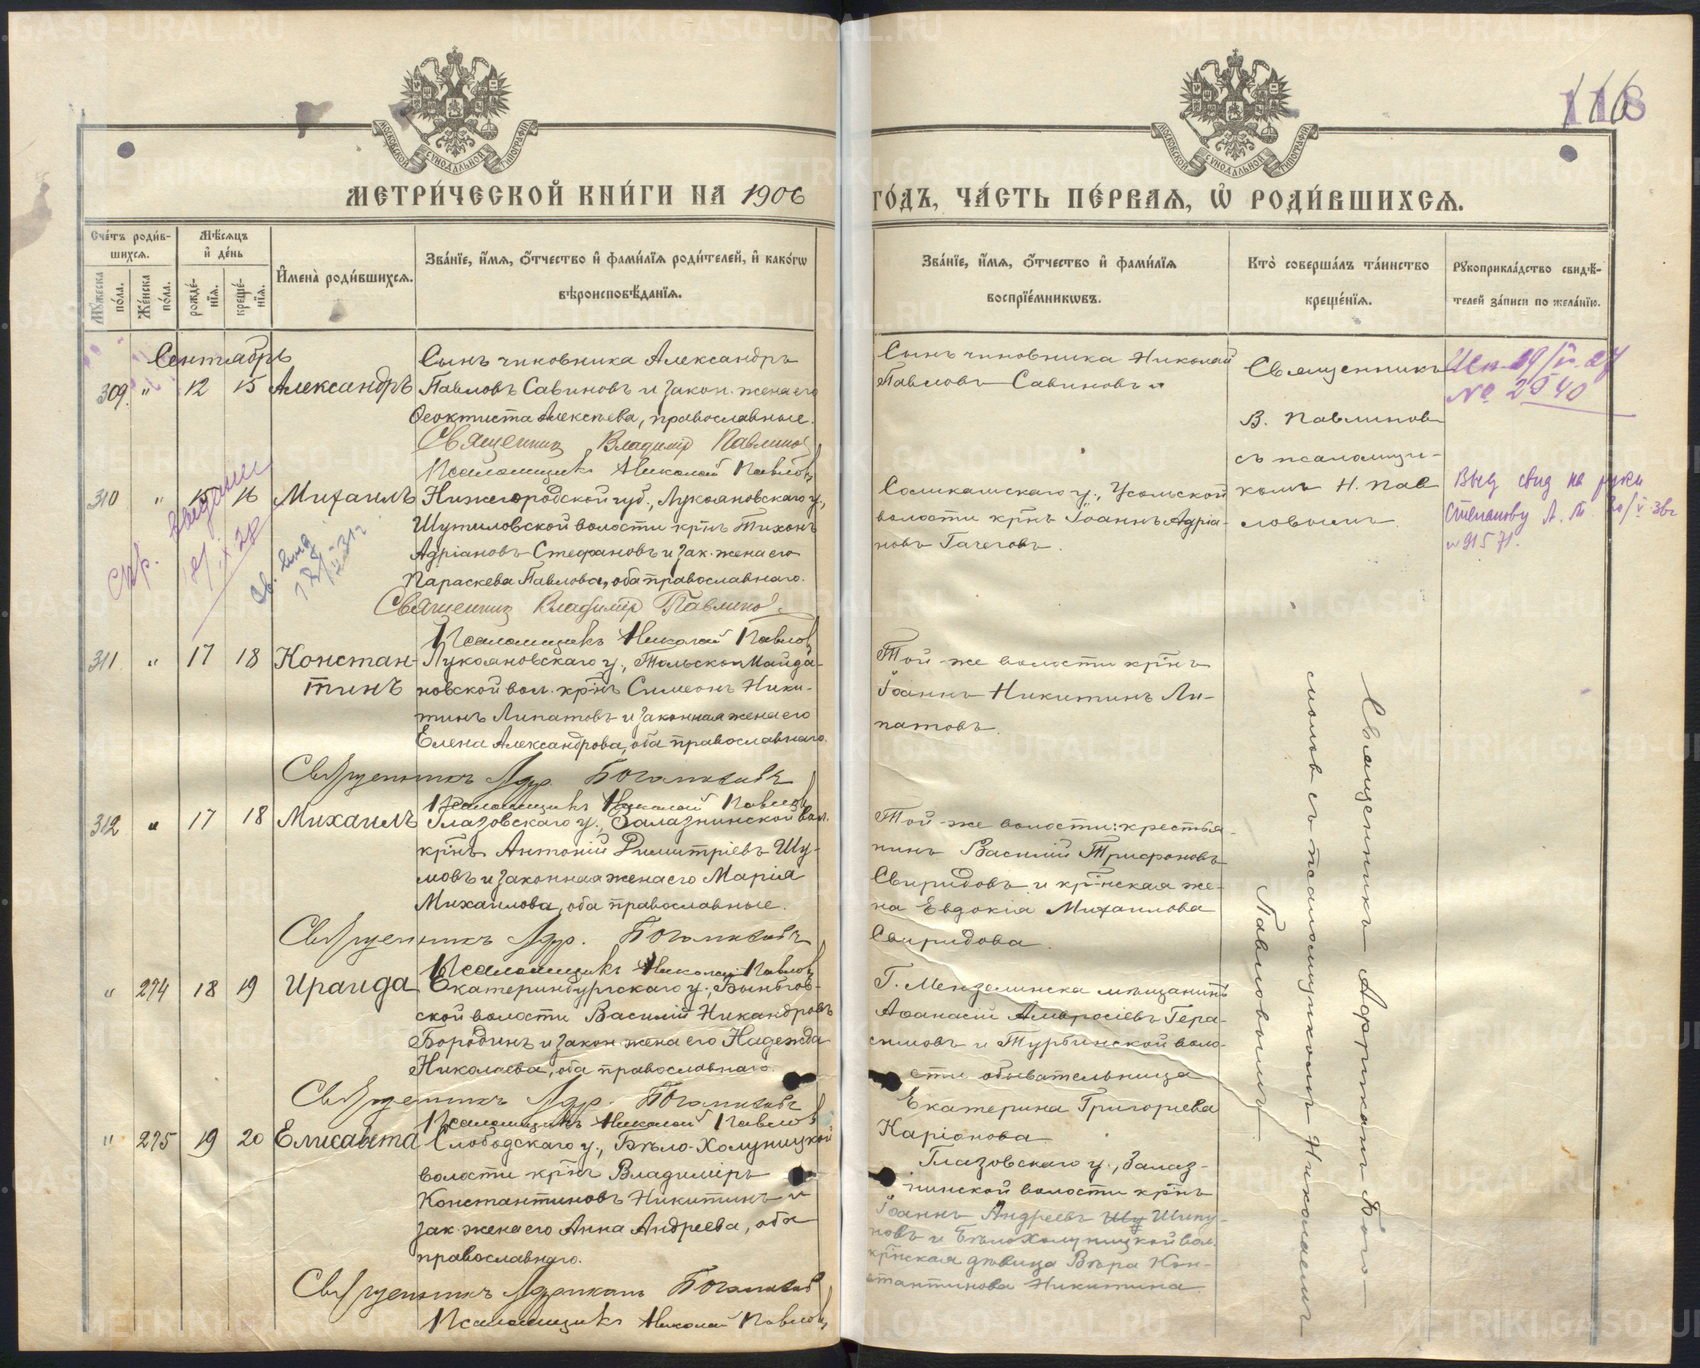 118
МЕТРИ́ЧЕСКОЙ КНИ́ГИ НА 1906
ГО́ДЪ, ЧА́СТЬ ПЕ́РВАЯ, Ѡ РОДИ́ВШИХСЯ.
Сче́тъ роди́в-
шихся.
Му́жеска
по́ла.
Же́нска
по́ла.
Мѣ́сяцъ
и де́нь
рожде́-
нїя.
креще́-
нїя.
Имена̀ роди́вшихся.
Зва́нїе, и́мя, о́тчество и фами́лїя роди́телей, и како́гѡ
вѣроисповѣ́данїя.
Зва́нїе, и́мя, о́тчество и фами́лїя
воспрїе́мникѡвъ.
Кто̀ соверша́лъ та́инство
креще́нїя.
Рукоприкла́дство свидѣ́-
телей за́писи по жела́нїю.
Сентябрь
309. " 12 15 Александръ
Сынъ чиновника Александръ
Павловъ Савиновъ и закон. жена его
Ѳеоктиста Алексѣева, православные.
Священникъ Владимір Павлинов
Псаломщикъ Николай Павловъ
Сынъ чиновника Николай
Павловъ Савиновъ
Священникъ
В. Павлинов
съ псаломщи-
комъ Н. Пав
ловымъ.
№ 2540
310 " 15 16 Михаилъ
Нижегородской губ., Лукояновскаго у.,
Шутиловской волости кр-нъ Тихонъ
Адріановъ Стефановъ и зак. жена его
Параскева Павлова, оба православнаго.
Священник Владимір Павлинов
Псаломщикъ Николай Павловъ
Соликамскаго у., Усольской
волости кр-нъ Іоаннъ Адріа-
новъ Гагеговъ.
Выд свид на руки
Степанову А. 
№ 91571.
311 " 17 18 Констан-
тинъ
Лукояновскаго у., Тольско Майда-
новской вол. кр-нъ Симеонъ Ники-
тинъ Липатовъ и законная жена его
Елена Александрова, оба православнаго.
Священникъ Афр. Богомоловъ
Псаломщикъ Николай Павловъ
Той-же волости кр-нъ
Іоаннъ Никитинъ Ли-
патовъ.
312 " 17 18 Михаилъ
Глазовскаго у., Залазнинской вол.
кр-нъ Антоній Димитріевъ Шу-
мовъ и законная жена его Марія
Михаилова, оба православные.
Священникъ Афр. Богомоловъ
Псаломщикъ Николай Павловъ
Той-же волости: крестья-
нинъ Василій Трифоновъ
Свиридовъ и кр-нская же-
на Евдокія Михаилова
Свиридова.
" 274 18 19 Ираида
Екатеринбургскаго у., Быньгов-
ской волости Василій Никандровъ
Бородинъ и закон. жена его Надежда
Николаева, оба православнаго.
Священникъ Афр. Богомоловъ
Псаломщикъ Николай Павловъ
Г. Мензелинска мѣщанинъ
Аѳанасій Амвросіевъ Гера-
симовъ и Турьинской воло-
сти обывательница
Екатерина Григорьева
Каріонова
" 275 19 20 Елисавета
Слободскаго у., Бѣло-Холуницкой
волости кр-нъ Владиміръ
Константиновъ Никитинъ и
зак. жена его Анна Андреева, оба
православнаго.
Священникъ Африканъ Богомоловъ
Псаломщикъ Николай Павловъ
Глазовскаго у., Залаз-
нинской волости кр-нъ
Іоаннъ Андреевъ Шу Шипу-
новъ и БѣлоХолуницкой вол.
кр-нская дѣвица Вѣра Кон-
стантинова Никитина
Священникъ Африканъ Бого-
моловъ съ псаломщикомъ Николаемъ
Павловымъ